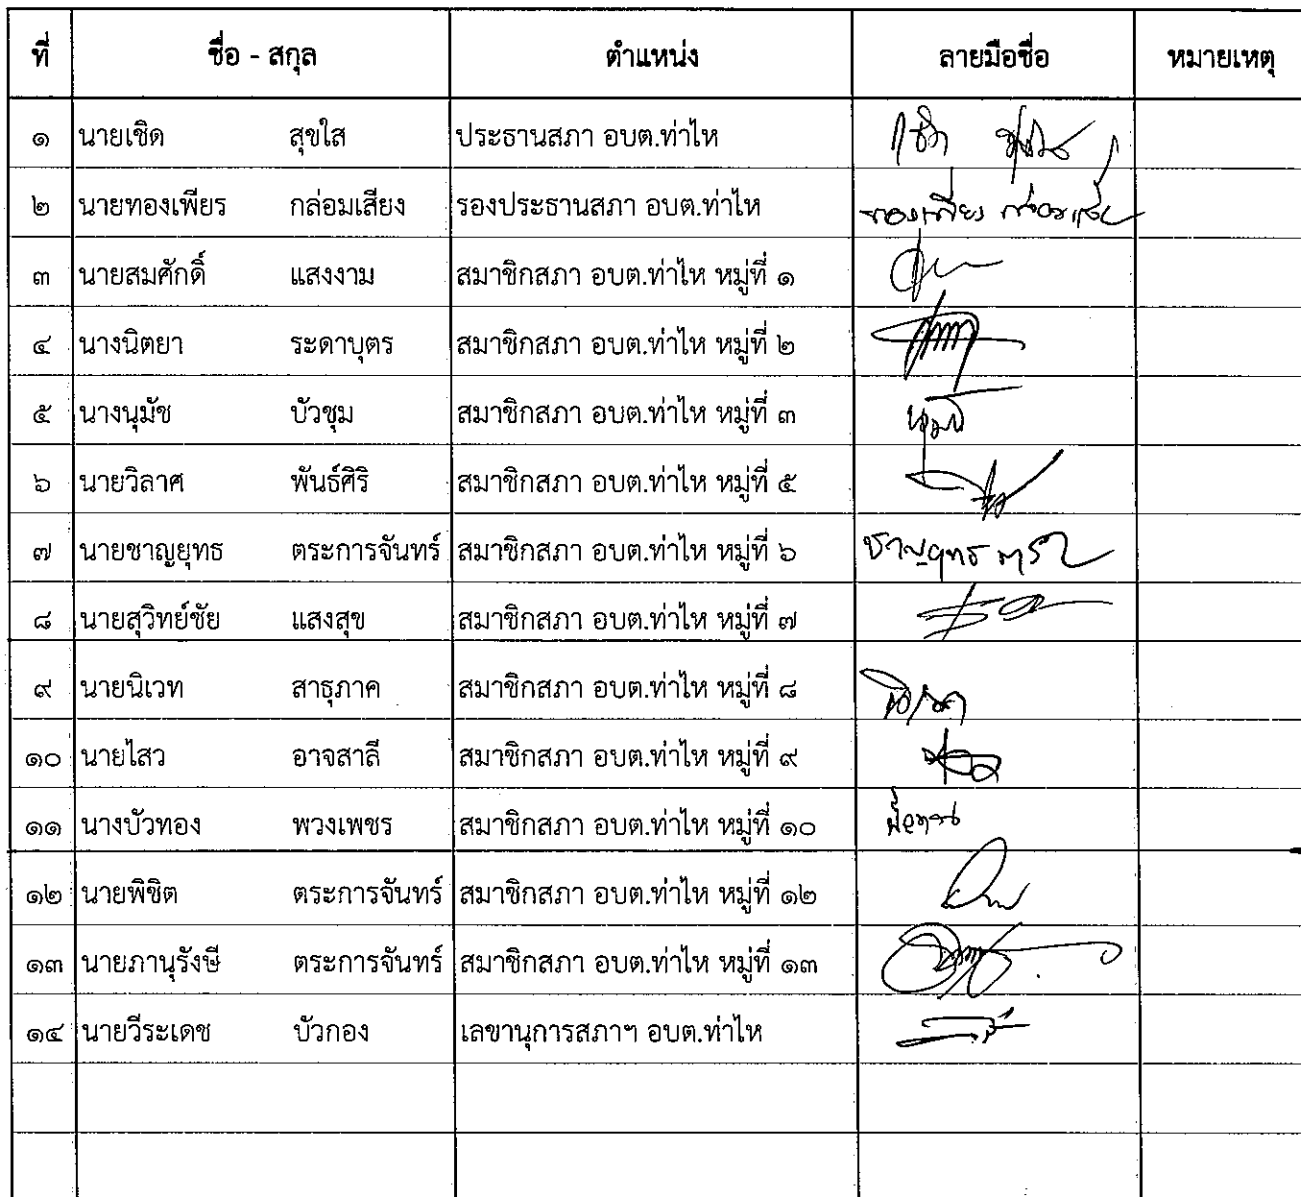 ที่ ชื่อ - สกุล ตำแหน่ง ลายมือชื่อ หมายเหตุ
๑ นายเชิด สุขใส ประธานสภา อบต.ท่าไห
๒ นายทองเพียร กล่อมเสียง รองประธานสภา อบต.ท่าไห
๓ นายสมศักดิ์ แสงงาม สมาชิกสภา อบต.ท่าไห หมู่ที่ ๑
๔ นางนิตยา ระดาบุตร สมาชิกสภา อบต.ท่าไห หมู่ที่ ๒
๕ นางนุมัช บัวชุม สมาชิกสภา อบต.ท่าไห หมู่ที่ ๓
๖ นายวิลาศ พันธ์ศิริ สมาชิกสภา อบต.ท่าไห หมู่ที่ ๕
๗ นายชาญยุทธ ตระการจันทร์ สมาชิกสภา อบต.ท่าไห หมู่ที่ ๖ ชาญยุทธ
๘ นายสุวิทย์ชัย แสงสุข สมาชิกสภา อบต.ท่าไห หมู่ที่ ๗
๙ นายนิเวท สาธุภาค สมาชิกสภา อบต.ท่าไห หมู่ที่ ๘
๑๐ นายไสว อาจสาลี สมาชิกสภา อบต.ท่าไห หมู่ที่ ๙
๑๑ นางบัวทอง พวงเพชร สมาชิกสภา อบต.ท่าไห หมู่ที่ ๑๐
๑๒ นายพิชิต ตระการจันทร์ สมาชิกสภา อบต.ท่าไห หมู่ที่ ๑๒
๑๓ นายภานุรังษี ตระการจันทร์ สมาชิกสภา อบต.ท่าไห หมู่ที่ ๑๓
๑๔ นายวีระเดช บัวกอง เลขานุการสภาฯ อบต.ท่าไห